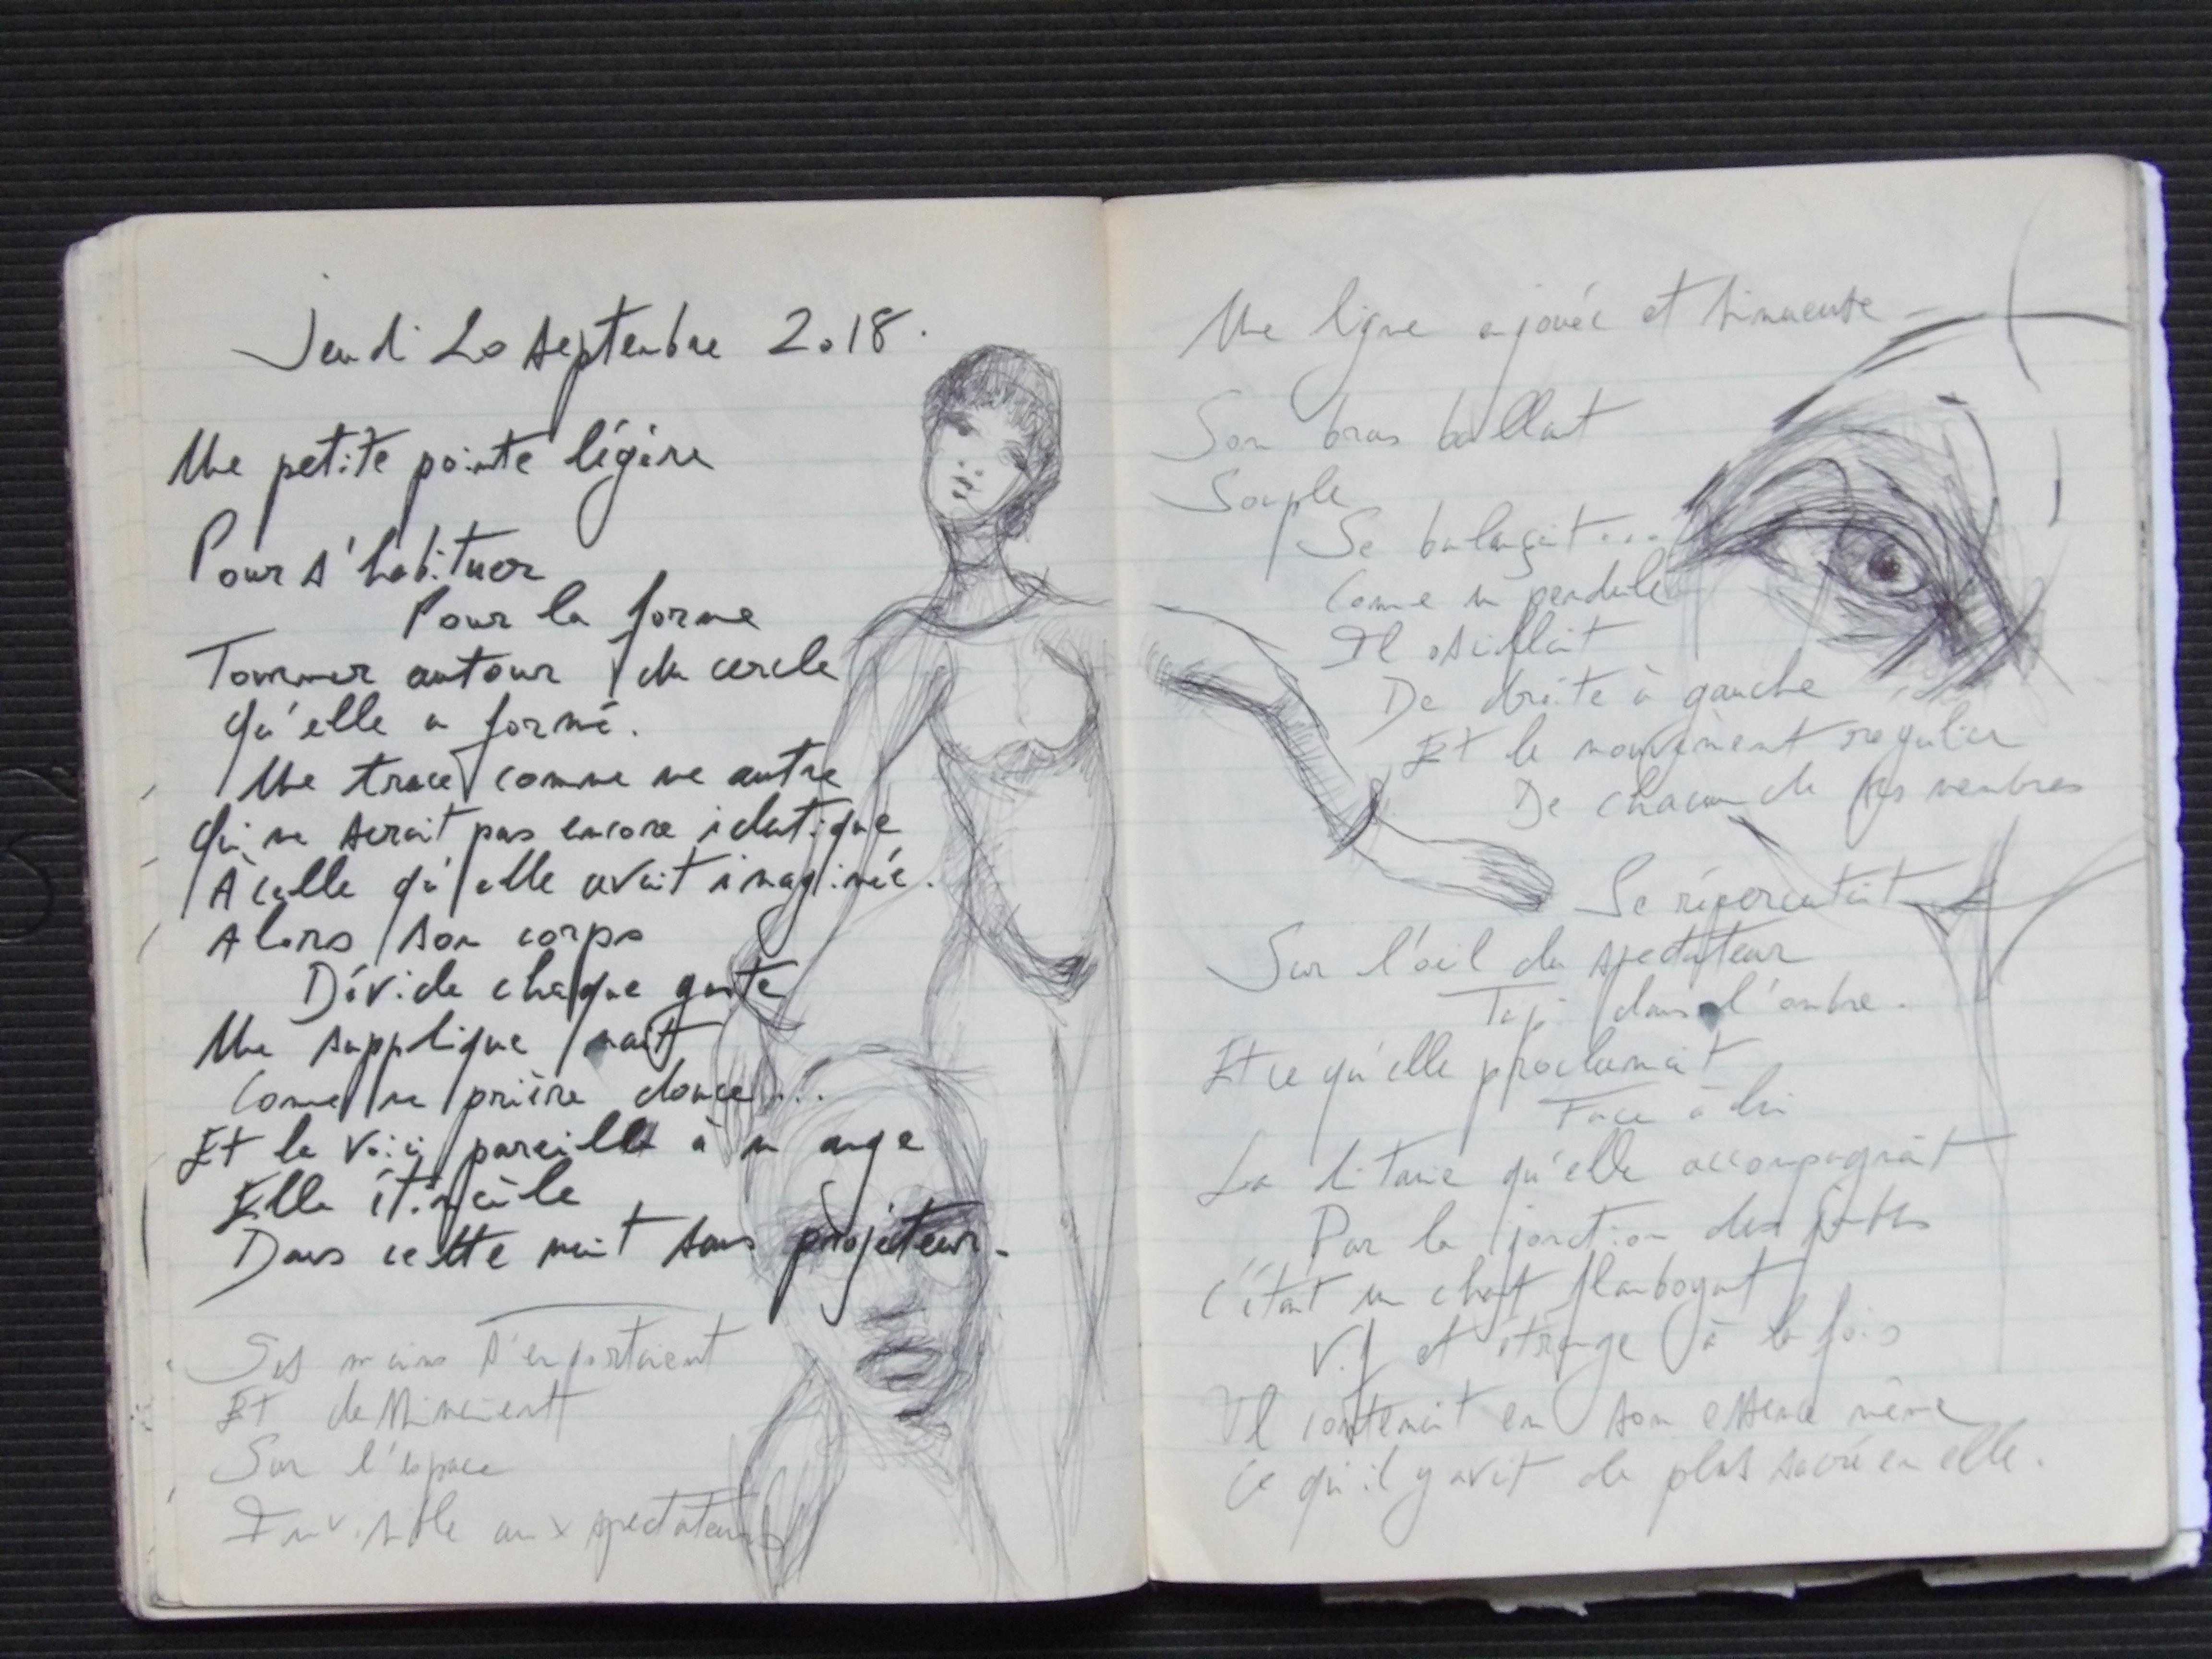 Jeudi 20 septembre 2018.
Une petite pointe légère
Pour s'habituer
Pour la forme
Tourner autour du cercle
qu'elle a formé.
Une trace comme une autre
Qui ne serait pas encore identique
À celle qu'elle avait imaginée.
Alors son corps
Dévide chaque geste
Une supplique naît
Comme une prière douce...
Et la voici pareille à un ange
Elle étincèle
Dans cette nuit sans projecteur.
Ses mains s'emportaient
Et dessinaient
Sur l'espace
Invisible aux spectateurs
Une ligne enjouée et sinueuse
Son bras ballant
Souple
Se balançait...
Comme un pendule
Il oscillait
De droite à gauche
Et le mouvement régulier
De chacun de ses membres
Se répercutait
Sur l'œil du spectateur
Tapi dans l'ombre.
Et ce qu'elle proclamait
Face à lui
La litanie qu'elle accompagnait
Par la jonction des
C'était un chant flamboyant
Vif et étrange à la fois
Il contenait en son essence même
Ce qu'il y avait de plus sacré en elle.